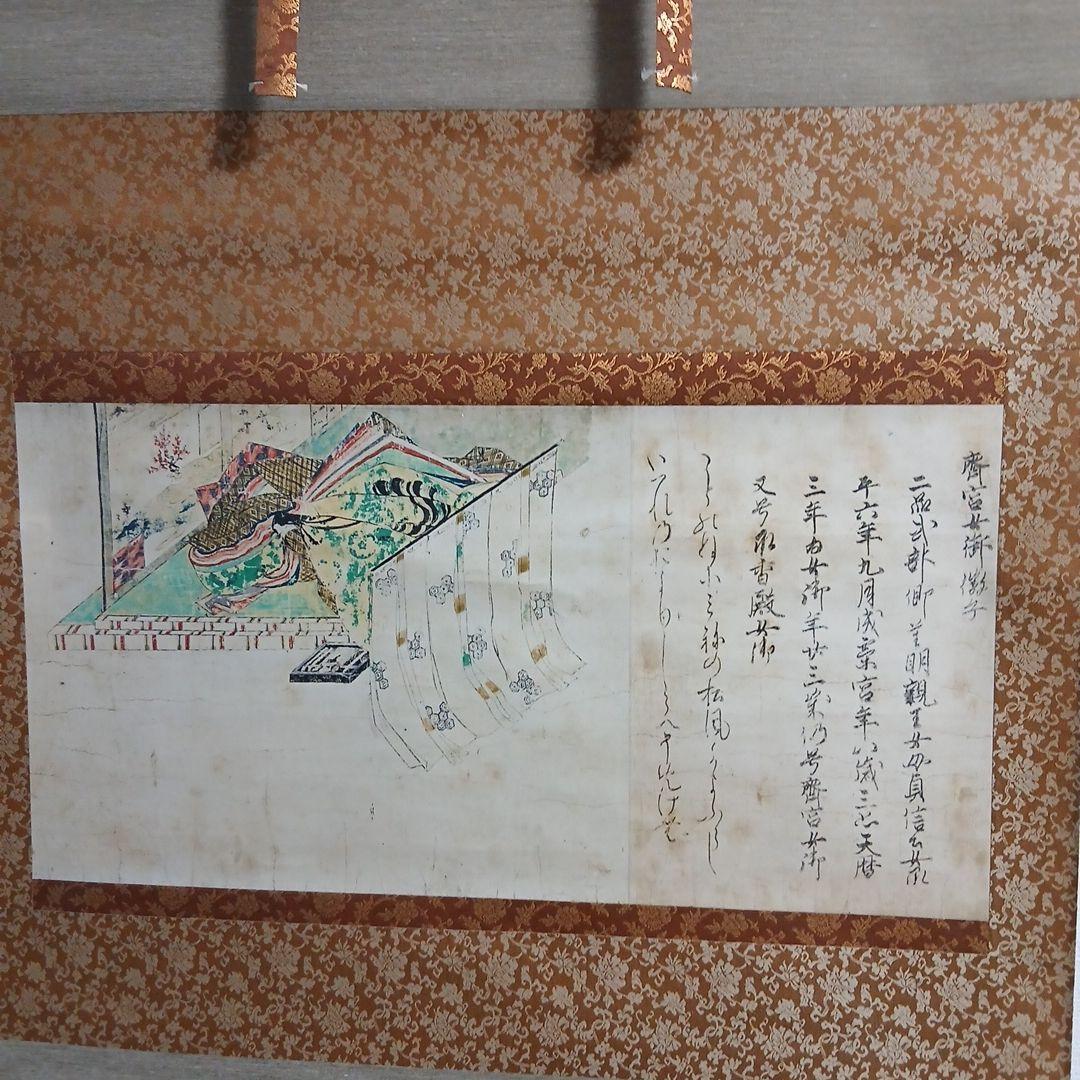 齊宮女御 徽子
二品式部卿重明親王女母貞信公女承
平六年九月為齊宮年八歳三品天暦
三年為女御年廿三歳仍号齊宮女御
又号承香殿女御
ことのねにみねの松風かよふらし
いつれのをよりしらへそめけむ